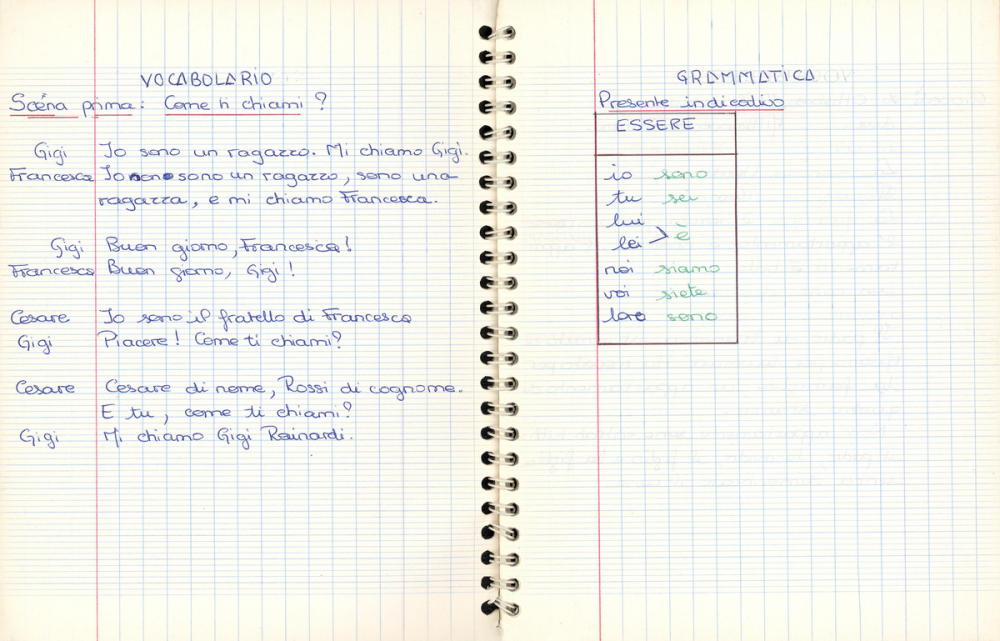 VOCABOLARIO
Scéna prima: Come ti chiami ?
Gigi Io sono un ragazzo. Mi chiamo Gigi.
Francesca Io sono un ragazzo, sono una
ragazza, e mi chiamo Francesca.
Gigi Buon giorno, Francesca!
Francesca Buon giorno, Gigi !
Cesare Io sono il fratello di Francesca
Gigi Piacere ! Come ti chiami?
Cesare Cesare di nome, Rossi di cognome.
E tu, come ti chiami?
Gigi Mi chiamo Gigi Rainardi.
GRAMMATICA
Presente indicativo
ESSERE
io sono
tu sei
lui
lei > è
noi siamo
voi siete
loro sono